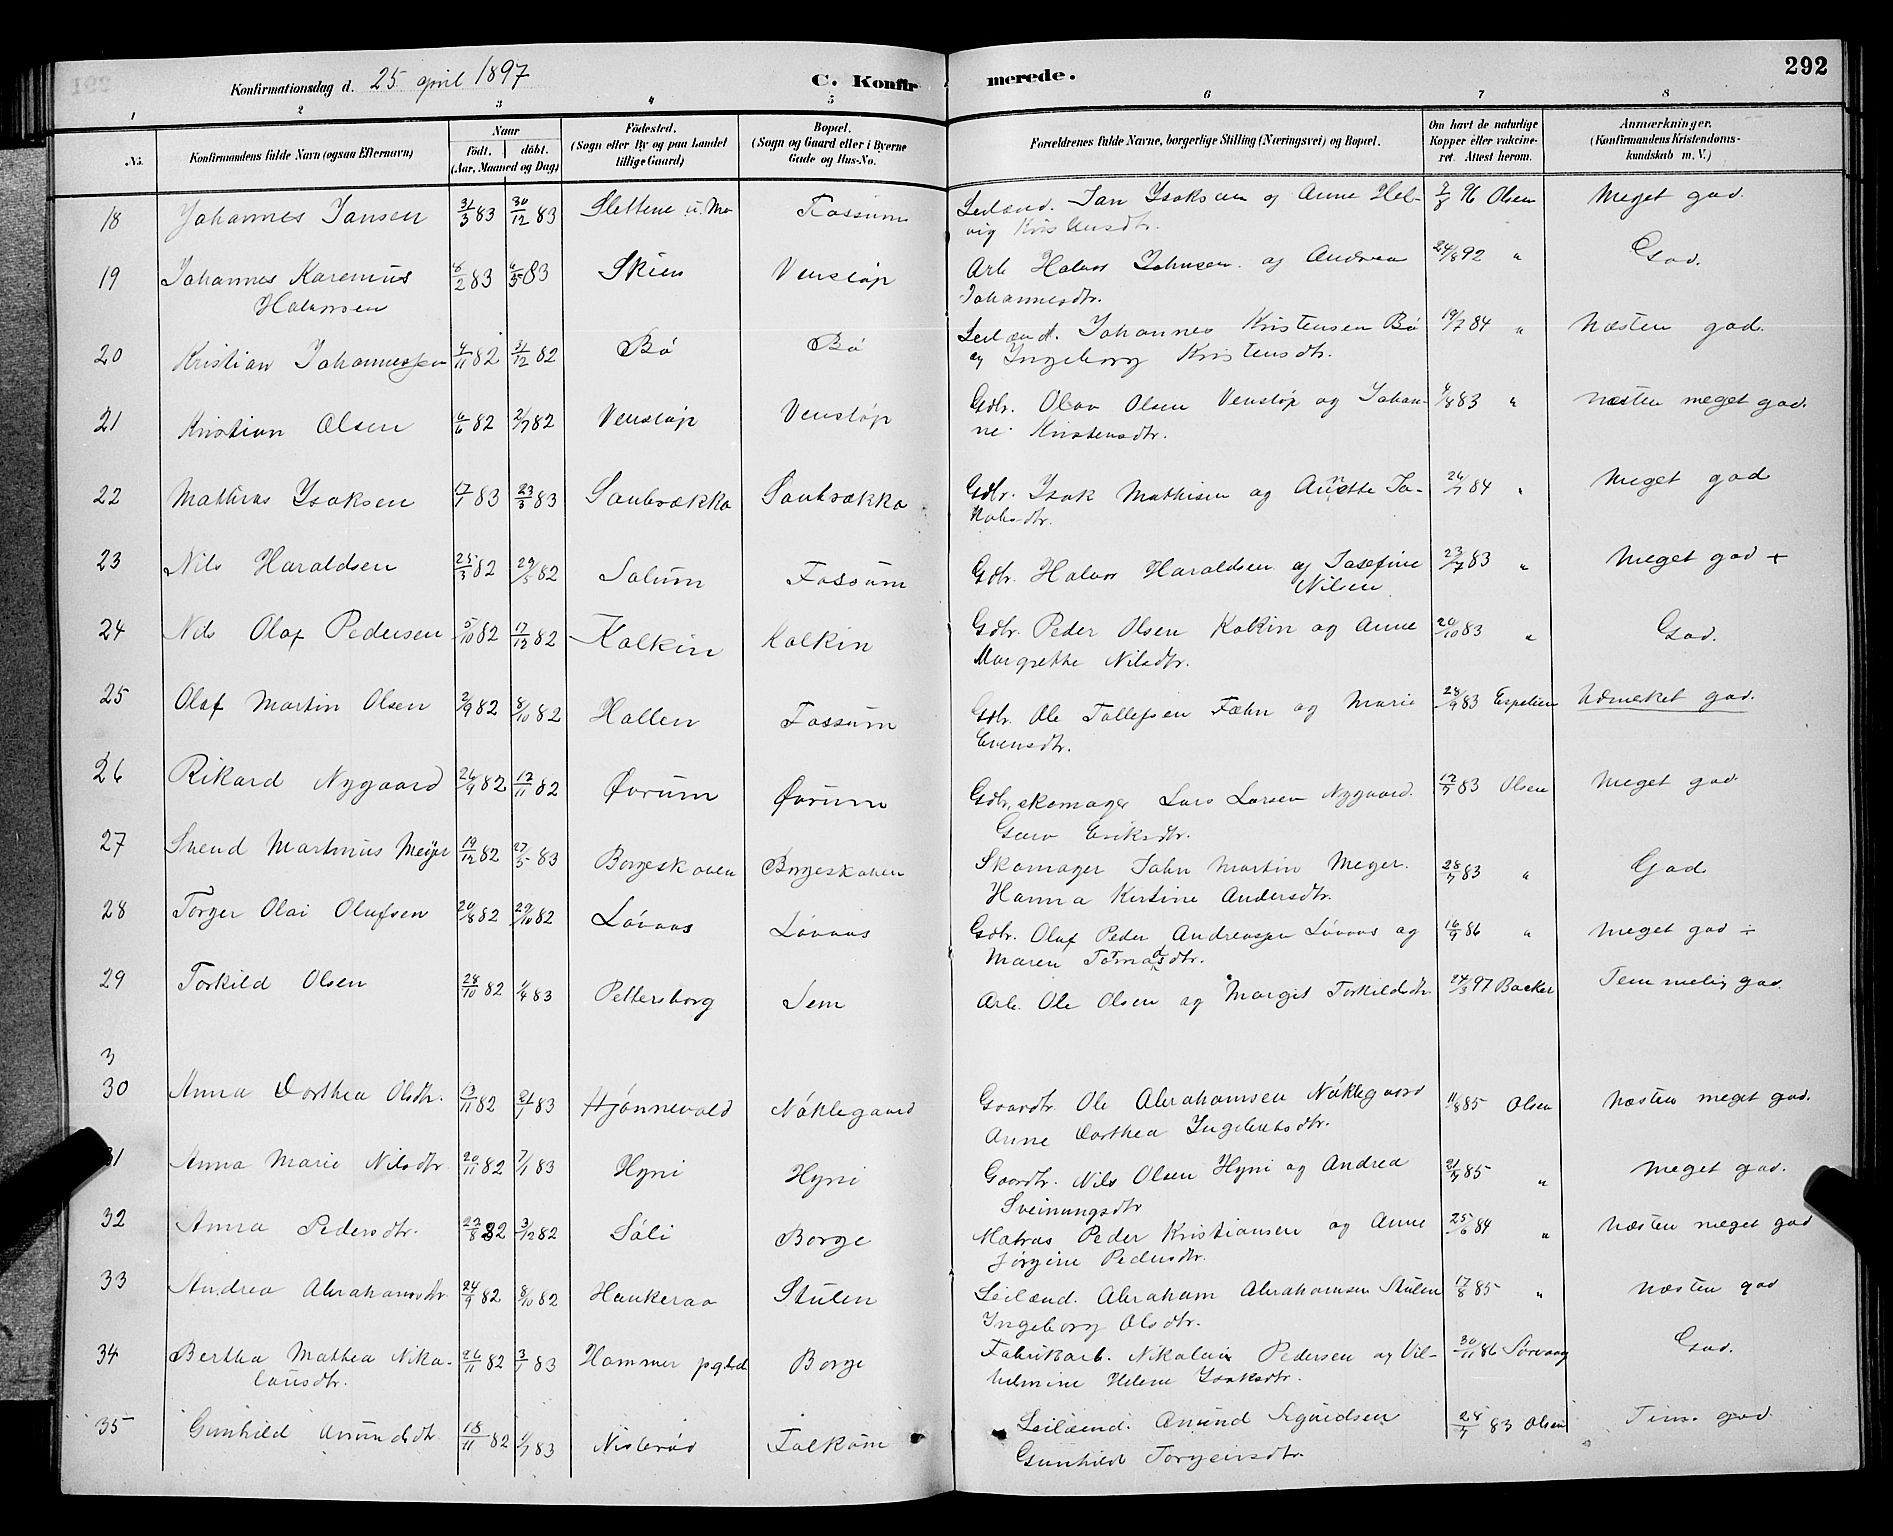 292
Konfirmationsdag d. 25 april 1897
C. Konfirmerede.
1 2 3 4 5 6 7 8
No.
Konfirmandens fulde Navn (ogsaa Efternavn)
Naar
födt. döbt.
(Aar, Maaned og Dag)
Födested.
(Sogn eller By og paa Landet
tillige Gaard)
Bopæl.
(Sogn og Gaard eller i Byerne
Gade og Hus-No.
Forældrenes fulde Navne, borgerlige Stilling (Næringsvei) og Bopæl.
Om havt de naturlige
Kopper eller vakcine-
ret. Attest herom.
Anmærkninger.
(Konfirmandens Kristendoms-
kundskab m. V.)
18 Johannes Jansen 31/3 83 30/12 83 Slettene u. Mo Fossum Leilænd. Jan Ysaksen og Anne Hel- Olsen Meget god.
vig Kristensdtr.
19 Johannes Karenius 83 83 Skien Venstøp Arb. Halvor Johnsen og Andrea 24/8 92 " God.
Halvorsen Johannesdtr.
20 Kristian Johannessen 4/11 82 31/12 82 Bö Bö Leilænd. Johannes Kristensen Bö 19/7 84 " Næsten god.
og Ingeborg Kristensdtr.
21 Kristian Olsen 6/6 82 2/7 82 Venstøp Venstøp Gdbr. Olav Olsen Venstøp og Johan- 83 " næsten meget god.
ne Kristensdtr.
22 Mathias Ysaksen 17/1 83 23/3 83 Saubrækka Saubrækka Gdbr. Ysak Mathisen og Anette Ja- 26/7 84 " Meget god
kobsdtr.
23 Nils Haraldsen 25/3 82 29/5 82 Solum Fossum Gdbr. Halvor Haraldsen og Josefine 23/7 83 " Meget god +
Nilsen
24 Nils Olaf Pedersen 5/10 82 17/12 82 Kolkin Kolkin Gdbr. Peder Olsen Kolkin og Anne 20/10 83 " God.
Margrethe Nilsdtr.
25 Olaf Martin Olsen 2/9 82 8/10 82 Hallen Fossum Gdbr. Ole Tollefsen Fæhn og Marie 28/9 83 Espelien Udmerket god.
Evensdtr.
26 Rikard Nygaard 26/9 82 12/11 82 Øvrum Øvrum Gdbr, skomager Lars Larsen Nygaard. 83 Olsen Meget god
Guro Eriksdtr.
27 Svend Martinius Meyer 19/12 82 27/5 83 Borgeskoven Borgeskoven Skomager John Martin Meyer. 28/7 83 " God
Hanna Kirstine Andersdtr.
28 Torger Olai Olafsen 20/8 82 29/10 82 Lövaas Lövaas Gdbr. Olaf Peder Andreassen Lövaas og 16/9 86 " Meget god ÷
Maren Tomasdtr.
29 Torkild Olsen 28/10 82 83 Pettersborg Sem Arb. Ole Olsen og Margit Torkildsdtr. 24/3 97 Backer Temmelig god.
3
30 Anna Dorthea Olsdtr. 13/11 82 21/1 83 Hjönnevald Nöklegaard Gaardbr. Ole Abrahamsen Nöklegaard 11/8 85 Olsen Næsten meget god.
Anne Dorthea Ingebretsdtr.
31 Anna Marie Nilsdtr. 20/11 82 7/1 83 Hyni Hyni Gaardbr. Nils Olsen Hyni og Andrea 85 " Meget god.
Sveinungsdtr
32 Anna Pedersdtr. 82 3/12 82 Söli Borge Matros Peder Kristiansen og Anne 25/6 84 " Næsten meget god
Jörgine Pedersdtr.
33 Andrea Abrahamsdtr. 24/9 82 8/10 82 Haukeraa Stulen Leilænd. Abraham Abrahamsen Stulen 17/8 85 " Næsten god
Ingeborg Olsdtr.
34 Bertha Mathea Niko- 26/11 82 3/1 83 Hammer pgld Borge Fabrikarb. Nikolai Pedersen og Vil- 30/11 86 Sörvaag God.
laisdtr. helmine Helene Ysaksdtr.
35 Gunhild Amundsdtr. 18/11 82 83 Nisterud Falkum Leilænd. Amund Sigurdsen 83 Olsen Tem. god
Gunhild Torgeirsdtr.